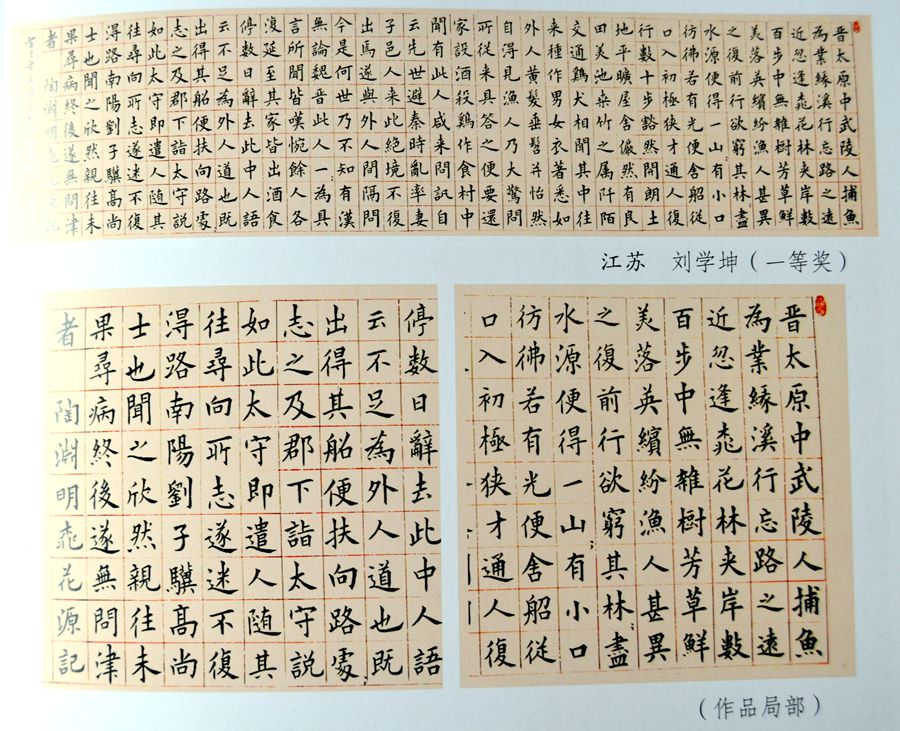 晋太原中武陵人捕魚
為業緣溪行忘路之遠
近忽逢桃花林夾岸數
百步中無雜樹芳草鮮
美落英繽紛漁人甚異
之復前行欲窮其林盡
水源便得一山有小口
彷彿若有光便舍船從
口入初極狹才通人復
行數十步豁然開朗土
地平曠屋舍儼然有良
田美池桑竹之属阡陌
交通鷄犬相聞其中往
来種作男女衣著悉如
外人黃髮垂髫并怡然
自得見漁人乃大驚問
所從来具答之便要還
家設酒殺鷄作食村中
聞有此人咸来問訊自
云先世避秦時亂率妻
子邑人来此絕境不復
出焉遂與外人間隔問
今是何世乃不知有漢
無論魏晋此人一為具
言所聞皆嘆惋餘人各
復延至其家皆出酒食
停數日辭去此中人語
云不足為外人道也既
出得其船便扶向路處
志之及郡下詣太守説
如此太守即遣人随其
往尋向所志遂迷不復
得路南陽劉子驥高尚
士也聞之欣然親往未
果尋病終後遂無問津
者 陶淵明桃花源記
江苏 刘学坤（一等奖）
晋太原中武陵人捕魚
為業緣溪行忘路之遠
近忽逢桃花林夾岸數
百步中無雜樹芳草鮮
美落英繽紛漁人甚異
之復前行欲窮其林盡
水源便得一山有小口
彷彿若有光便舍船從
口入初極狹才通人復
停數日辭去此中人語
云不足為外人道也既
出得其船便扶向路處
志之及郡下詣太守説
如此太守即遣人随其
往尋向所志遂迷不復
得路南陽劉子驥高尚
士也聞之欣然親往未
果尋病終後遂無問津
者 陶淵明桃花源記
（作品局部）